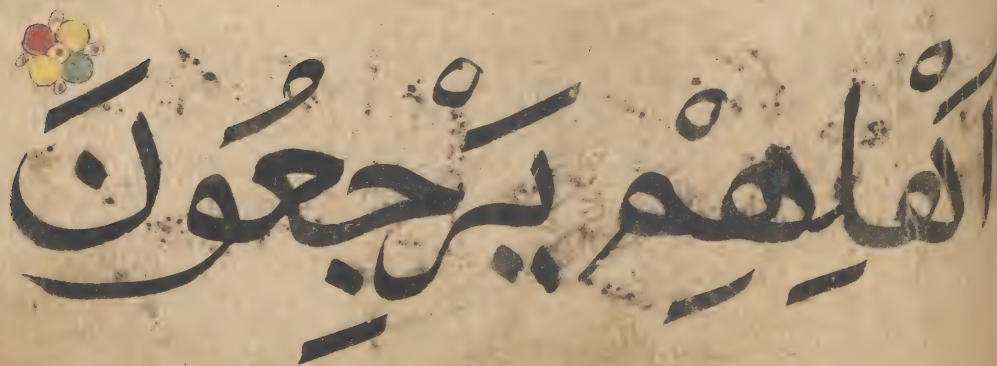 اَهْلِهِمْ يَرْجِعُونَ